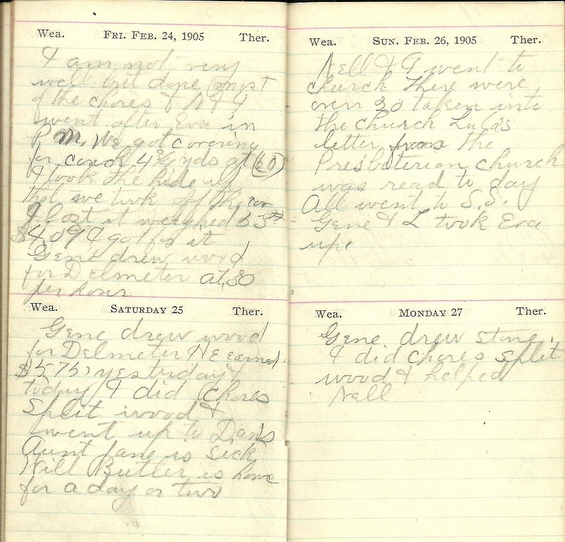 Wea. FRI. FEB. 24, 1905 Ther.
I am not very
well but done most
of the chores N & I
went after Eva in
P.M. We got covering
for couch 4 yds at 60
I took the hide up
that we took off the cow
I lost it weighed 53
$4.09 I got for it
Gene drew wood
for Delmeter at .30
per hour
Wea. SATURDAY 25 Ther.
Gene drew wood
for Delmeter He earned
$5.75 yesterday &
today I did chores
Split wood &
went up to Dan's
Aunt Jane is sick
Will Butler is home
for a day or two
Wea. SUN. FEB. 26, 1905 Ther.
Nell & I went to
church there were
over 30 taken into
the church Lucas
letter from the
Presbiterion church
was read to day
All went to S.S.
Gene & L took Eva
up
Wea. MONDAY 27 Ther.
Gene drew stone.
I did chores split
wood & helped
Nell